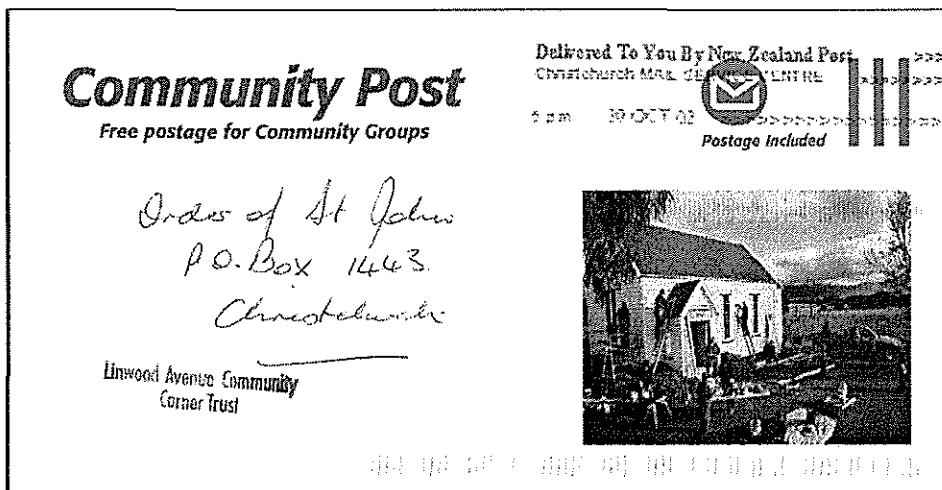 Community Post
Free postage for Community Groups
Delivered To You By New Zealand Post
Christchurch MAIL SERVICE CENTRE
5 pm 30 OCT 02
Postage Included
Order of St John
P.O. Box 1443
Christchurch
Linwood Avenue Community
Corner Trust